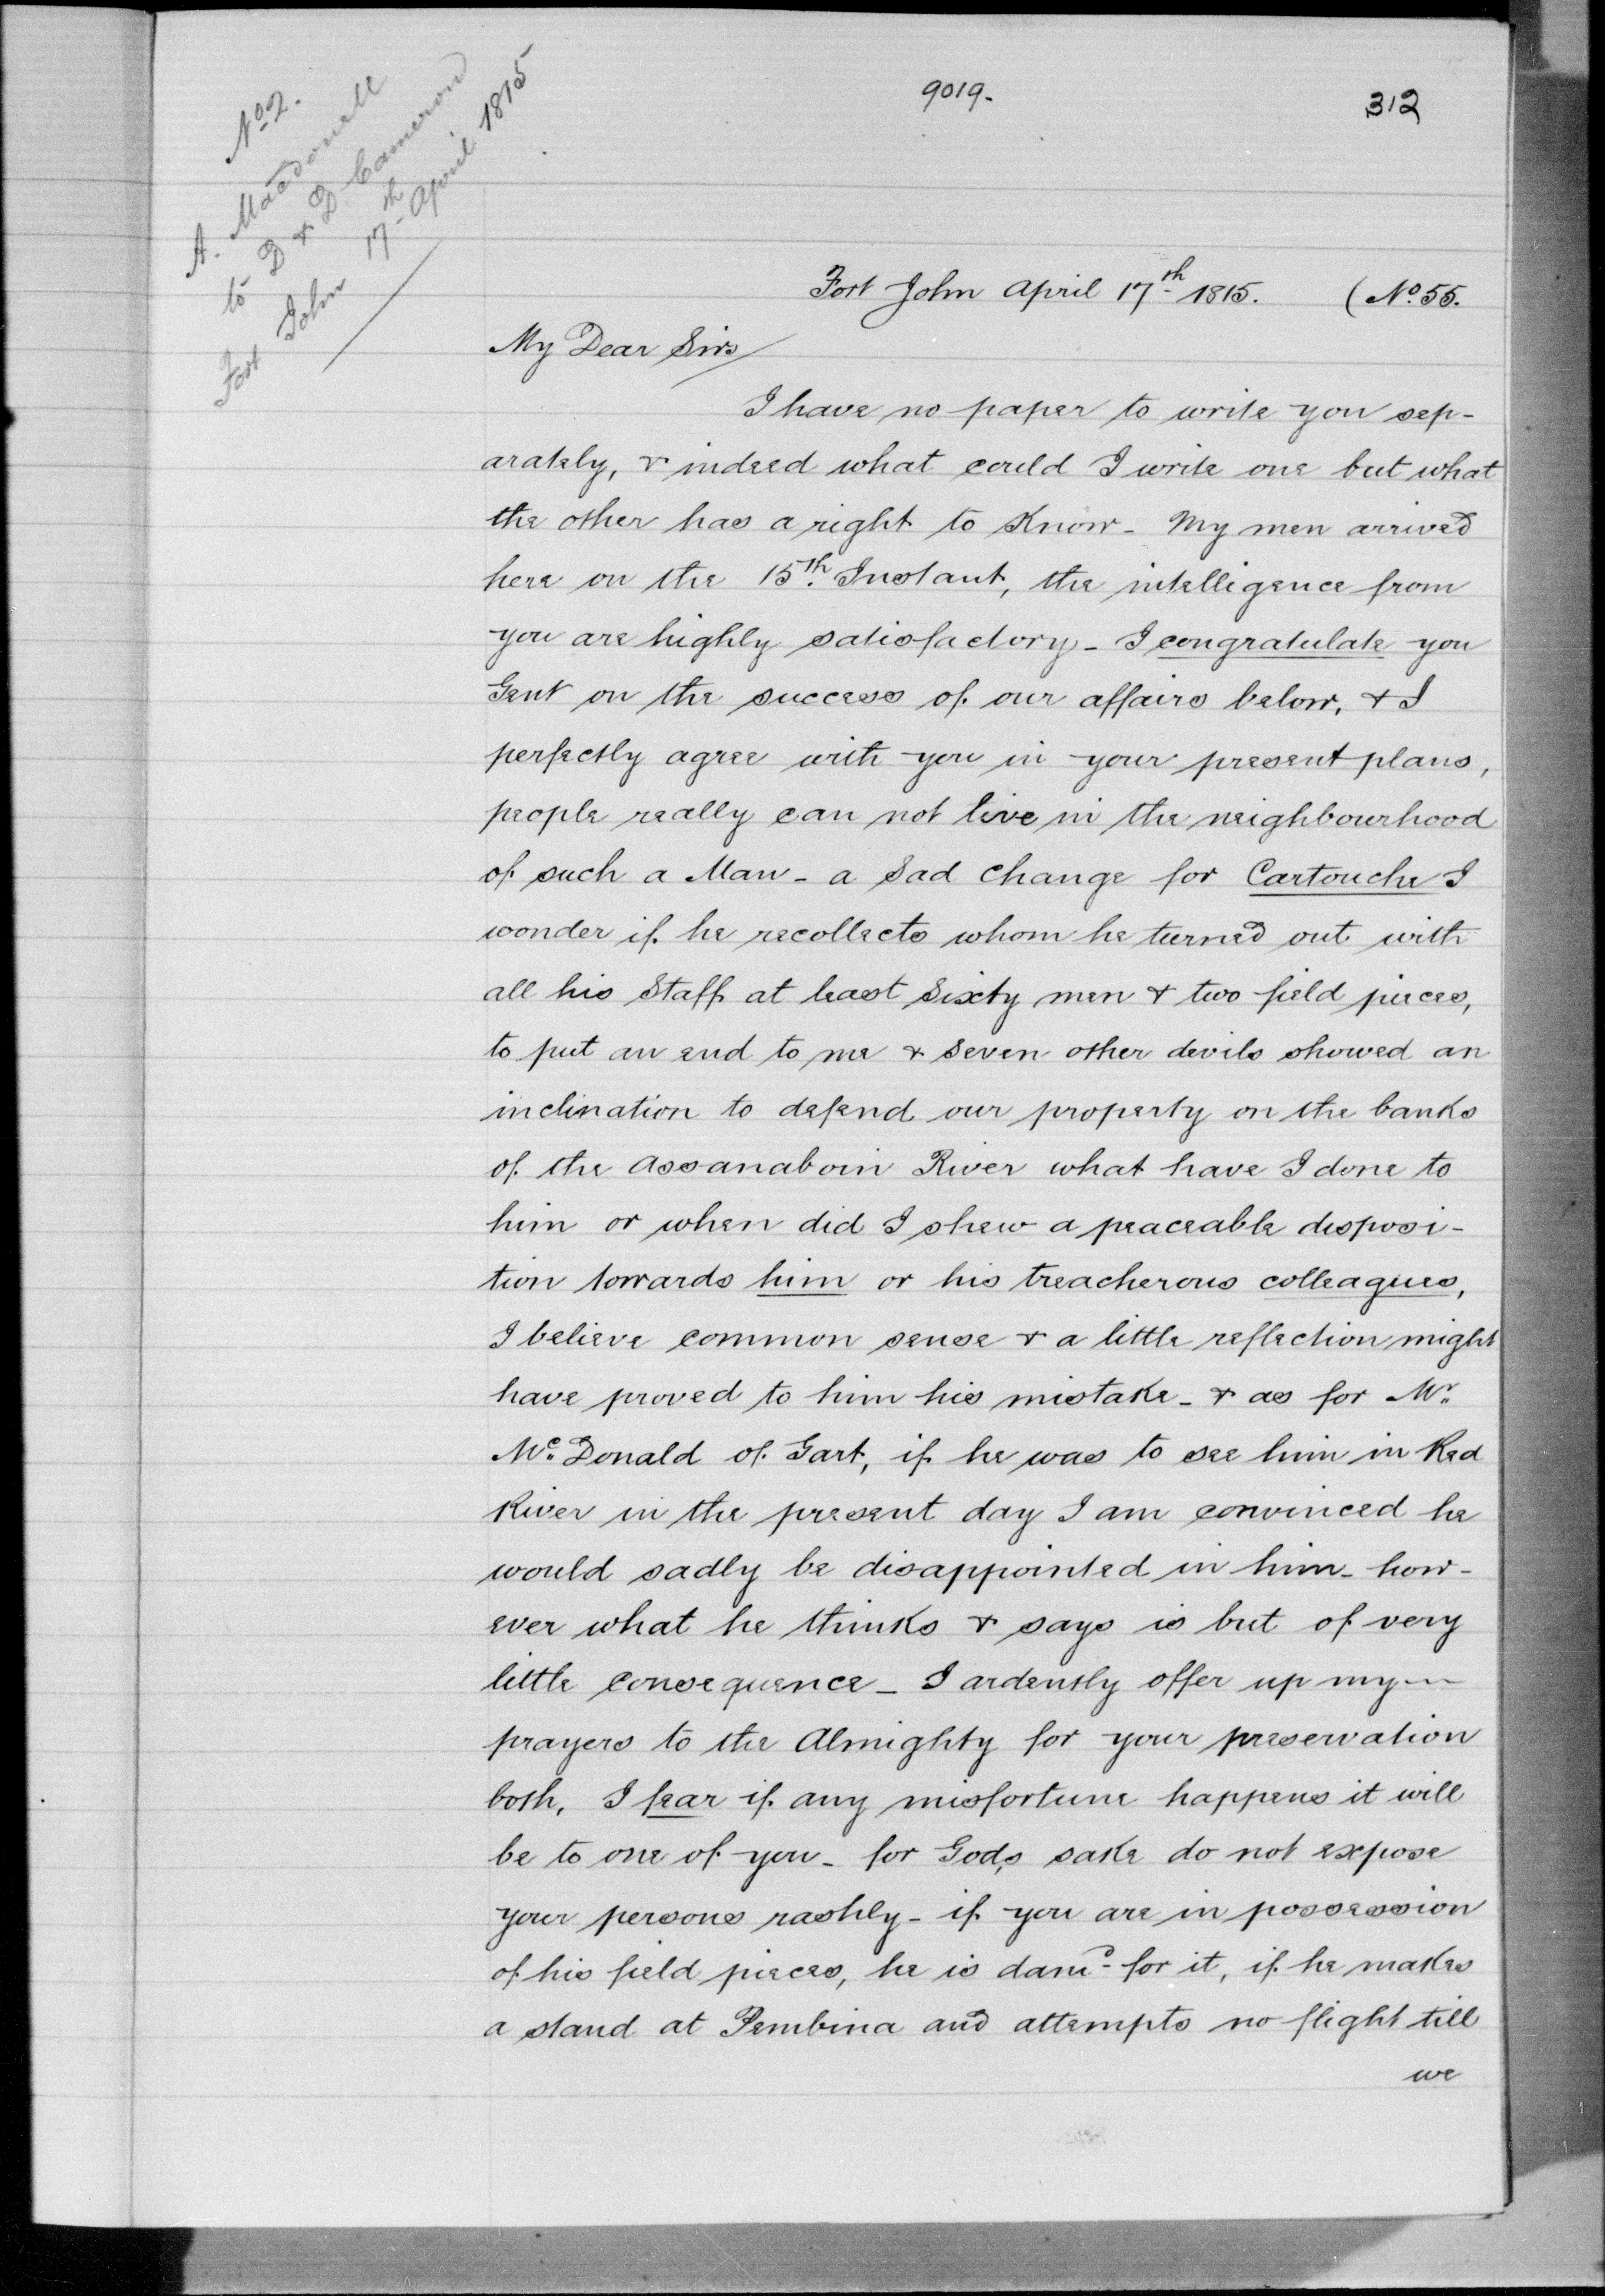 9019.
312
No 2.
A. Macdonell
to D & D Cameron
Fort John 17th April 1815
Fort John April 17th 1815. (No. 55.
My Dear Sirs
I have no paper to write you sep-
arately, & indeed what could I write one but what
the other has a right to know - My men arrived
here on the 15th. Instant, the intelligence from
you are highly satisfactory - I congratulate you
Gent on the success of our affairs below, & I
perfectly agree with you in your present plans,
people really can not live in the neighbourhood
of such a Man - a sad change for Cartouche I
wonder if he recollects whom he turned out with
all his Staff at least Sixty men & two field pieces,
to put an end to me & seven other devils showed an
inclination to defend our property on the banks
of the Assanaboin River what have I done to
him or when did I shew a peaceable disposi-
tion towards him or his treacherous colleagues,
I believe common sense & a little reflection might
have proved to him his mistake - & as for Mr.
Mc. Donald of Gart, if he was to see him in Red
River in the present day I am convinced he
would sadly be disappointed in him - how-
ever what he thinks & says is but of very
little consequence - I ardently offer up my
prayers to the Almighty for your preservation
both, I fear if any misfortune happens it will
be to one of you - for God,s sake do not expose
your persons rashly - if you are in possession
of his field pieces, he is damd for it, if he makes
a stand at Pembina and attempts no flight till
we